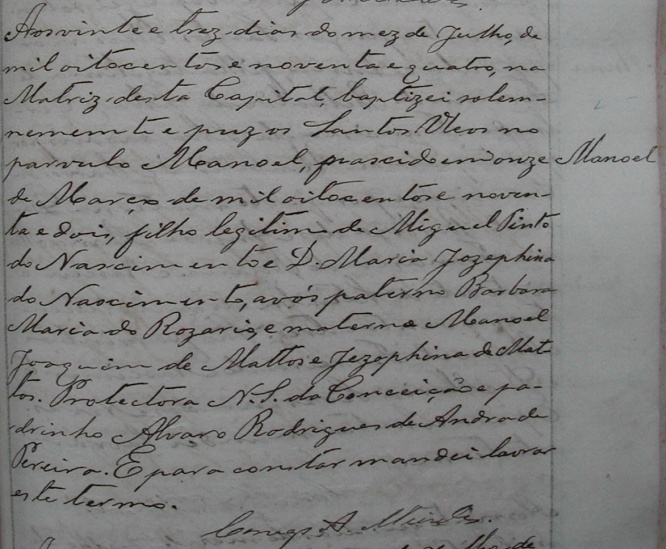 Aos vinte e trez dias do mez de Julho, de
mil oitocentos e noventa e quatro, na
Matriz desta Capital, baptizei solem-
nemente e puz os Santos Oleos no
parvulo Manoel, nascido em onze
Manoel
de Março de mil oitocentos e noven-
ta e doi, filho legitimo de Miguel Pinto
do Nascimento e D. Maria Jozephina
do Nascimento, avós paterno Barbara
Maria do Rozario, e materno Manoel
Joaquim de Mattos e Jozephina de Mat-
tos. Protectora N. S. da Conceição e pa-
drinho Alvaro Rodrigues de Andrade
Pereira. E para constar mandei lavrar
este termo.
A.